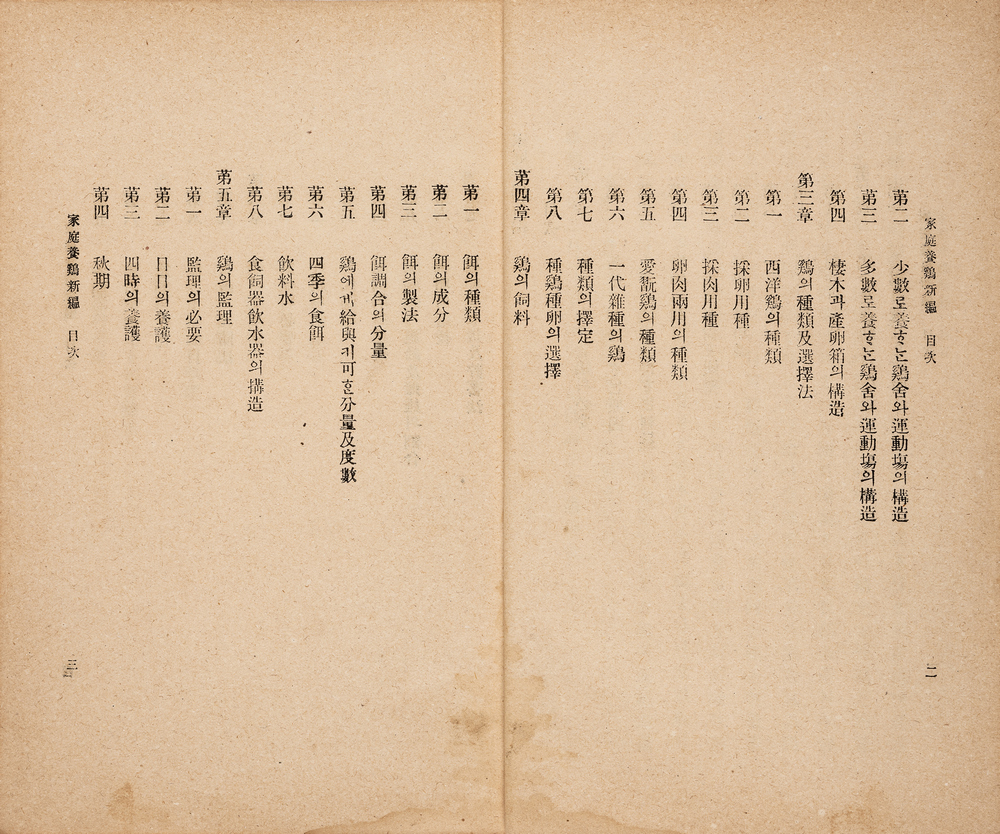 家庭養鷄新編 目次
第二 少數로養ᄒᆞᄂᆞᆫ鷄舍와運動塲의構造
第三 多數로養ᄒᆞᄂᆞᆫ鷄舍와運動塲의構造
第四 棲木과產卵箱의構造
第三章 鷄의種類及選擇法
第一 西洋鷄의種類
第二 採卵用種
第三 採肉用種
第四 卵肉兩用의種類
第五 愛翫鷄의種類
第六 一代雜種의鷄
第七 種類의擇定
第八 種鷄種卵의選擇
第四章 鷄의飼料
二
第一 餌의種類
第二 餌의成分
第三 餌의製法
第四 餌調合의分量
第五 鷄에게給與키可ᄒᆞᆫ分量及度數
第六 四季의食餌
第七 飮料水
第八 食餌器飮水器의搆造
第五章 鷄의監理
第一 監理의必要
第二 日日의養護
第三 四時의養護
第四 秋期
家庭養鷄新編 目次
三